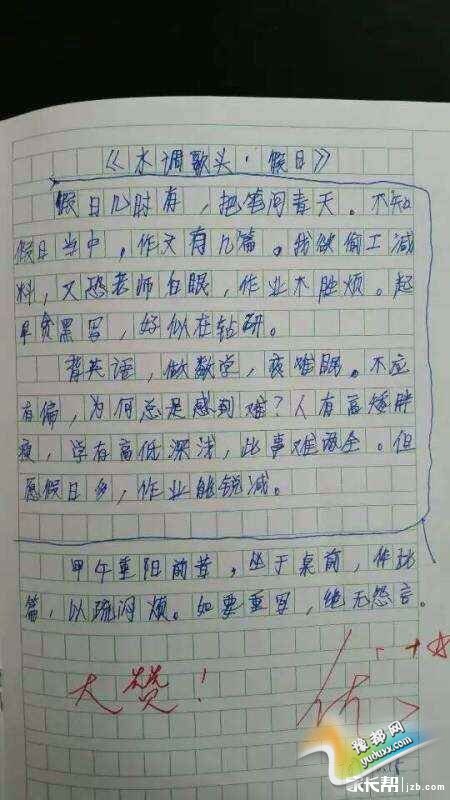 《水调歌头·假日》
假日几时有，把笔问青天。不知
假日当中，作文有几篇。我欲偷工减
料，又恐老师白眼，作业不胜烦。起
早贪黑写，好似在钻研。
背英语，做数学，夜难眠。不应
有偏，为何总是感到难？人有高矮胖
瘦，学有高低深浅，此事难语全。但
愿假日多，作业能锐减。
甲午重阳前茸，坐于桌前，作此
篇，以疏闷烦。如要重写，绝无怨言。
大赞！
优
豫都网
yuduxx.com
家长帮 jzb.com